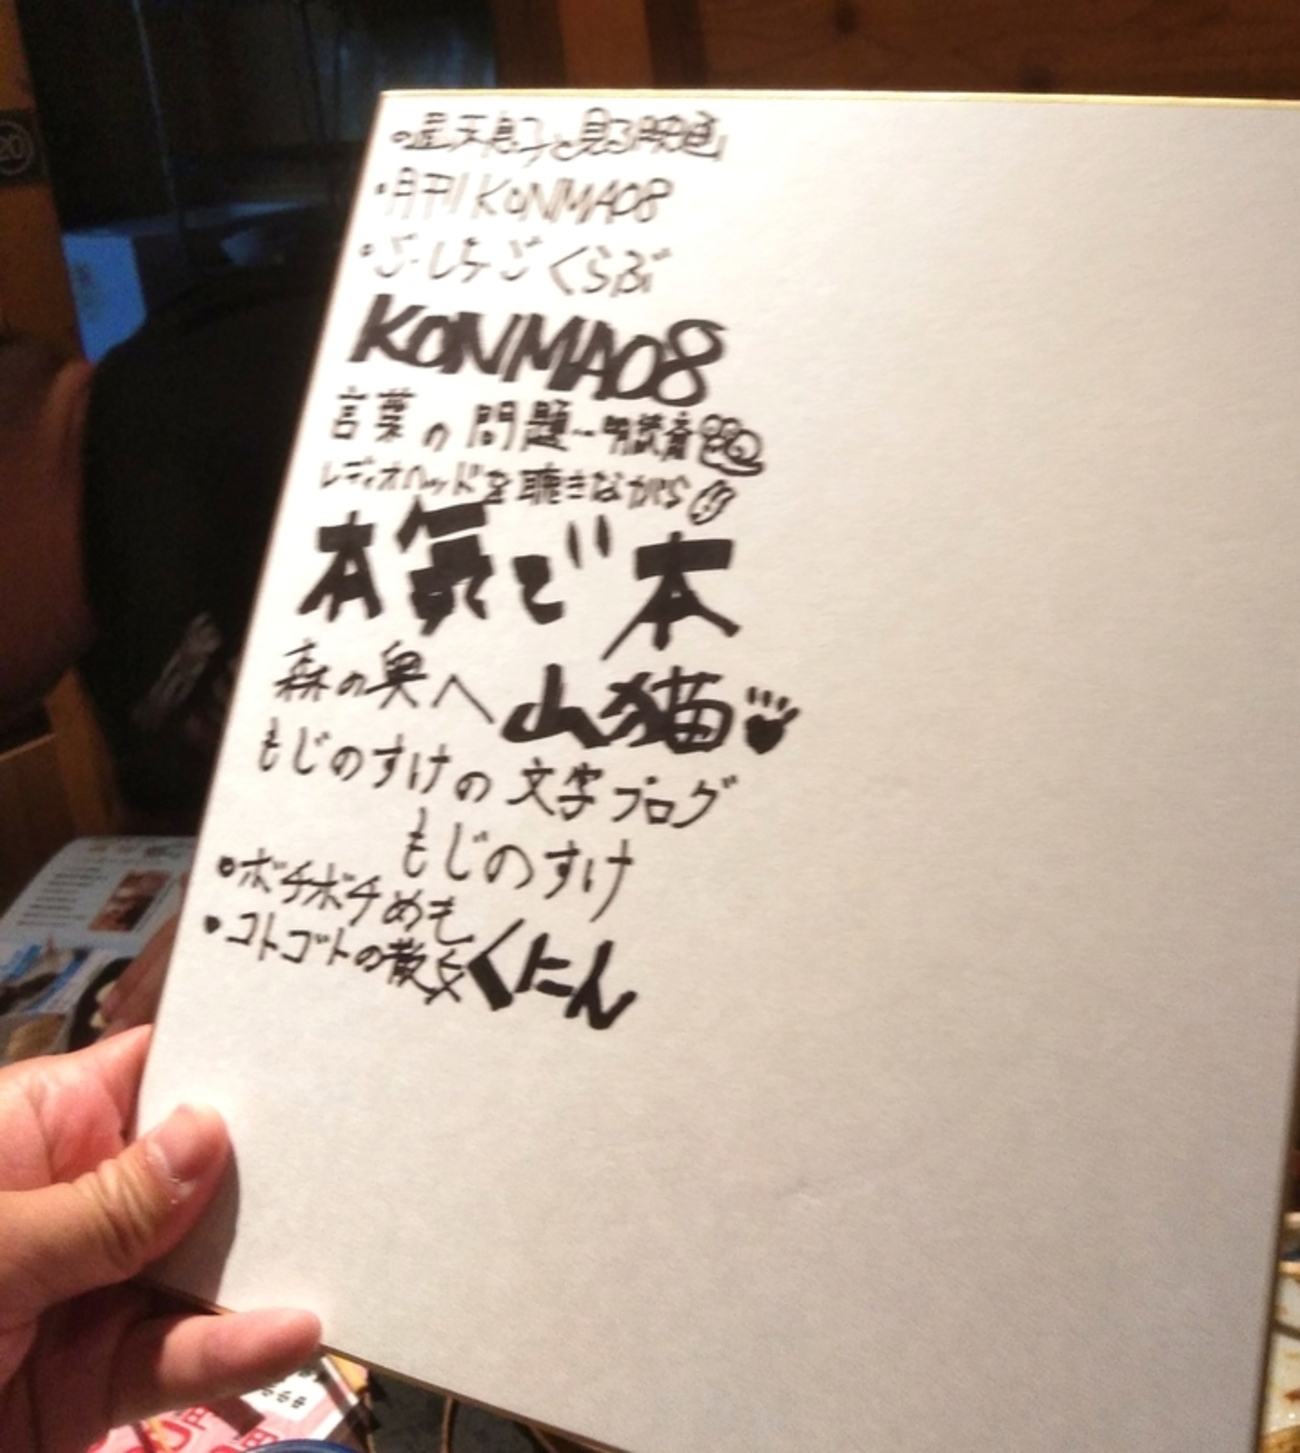 ・屋根裏で見る映画
・月刊KONMA08
・ご・しち・ごくらぶ
KONMA08
言葉の問題〜明読斎
レディオヘッドを聴きながら
本気で本
森の奥へ 山猫
もじのすけの文字ブログ
もじのすけ
・ボチボチめも
・コトゴトの散文 くにん